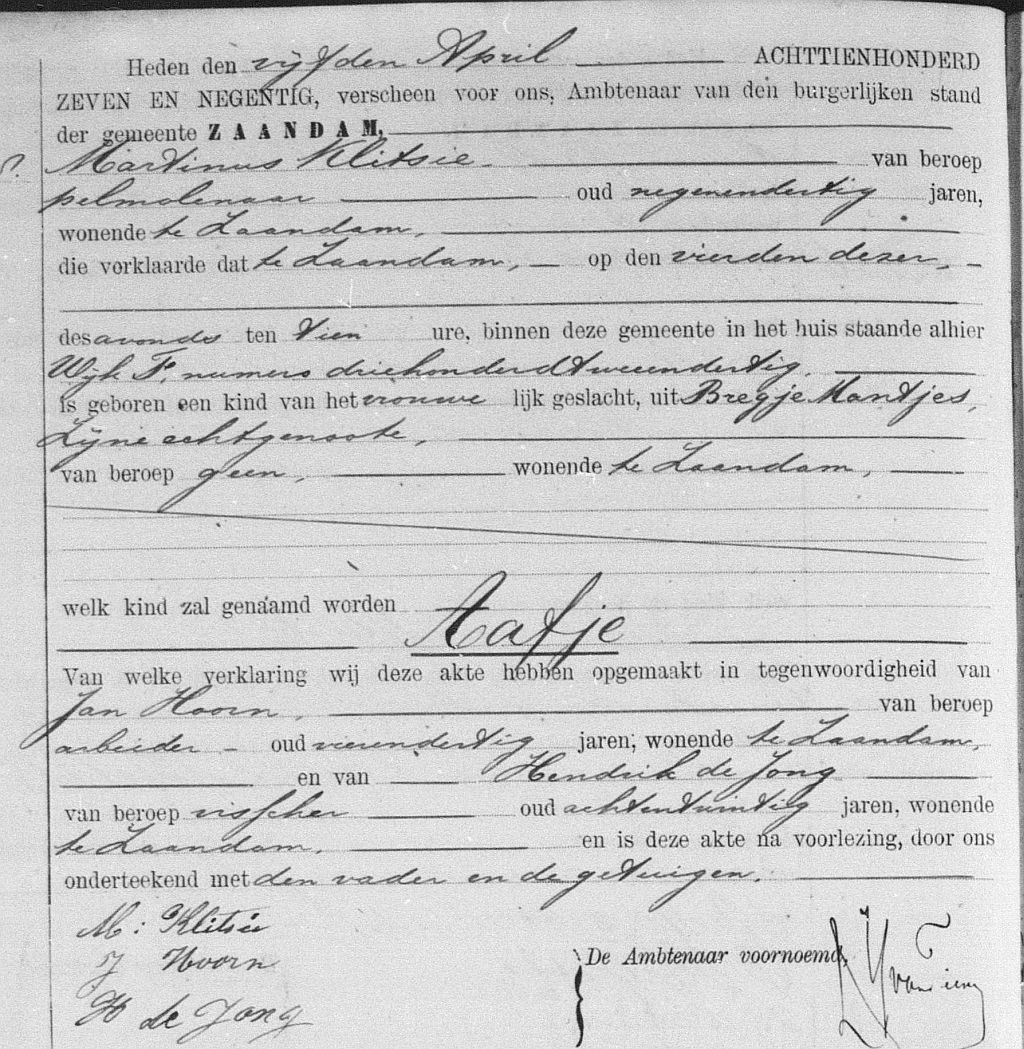 Heden den vijfden April ACHTTIENHONDERD
ZEVEN EN NEGENTIG, verscheen voor ons, Ambtenaar van den burgerlijken stand
der gemeente ZAANDAM,
Martinus Klitsie van beroep
pelmolenaar oud negenendertig jaren,
wonende te Zaandam,
die verklaarde dat te Zaandam, op den vierden dezer,
des avonds ten tien ure, binnen deze gemeente in het huis staande alhier
Wijk F. numero driehonderdtweeendertig.
is geboren een kind van het vrouwe lijk geslacht, uit Bregje Mantjes,
Zijne echtgenoote,
van beroep geen, wonende te Zaandam,
welk kind zal genaamd worden
Aafje
Van welke verklaring wij deze akte hebben opgemaakt in tegenwoordigheid van
Jan Hoorn, van beroep
arbeider oud vierendertig jaren, wonende te Zaandam,
en van Hendrik de Jong
van beroep visscher oud achtentwintig jaren, wonende
te Zaandam. en is deze akte na voorlezing, door ons
onderteekend met den vader en de getuigen.
M: Klitsie
J Hoorn
De Ambtenaar voornoemd,
H de Jong